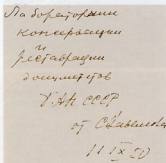 Лаборатории
консервации
и
реставрации
документов
ГАН СССР
от
11 IX